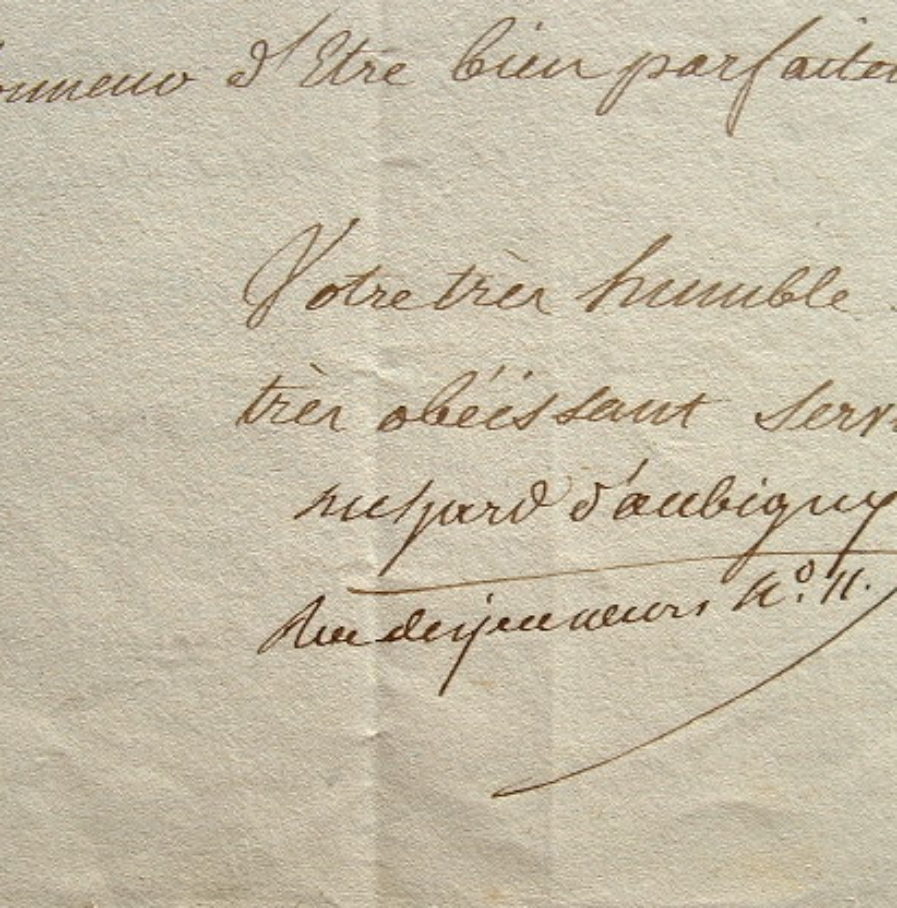 onneur d'Etre bien parfaite
Votre très humble
très obéissant serv
d'aubigny
Rue des jeuneurs N°. 11.